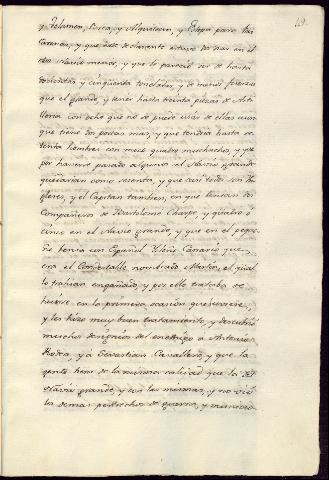 49
y Velamen, Brea, y Alquitran, y Estopa para las
Carenas, y que
otro Navio menos, y que le pareció ser de hasta
doscientas, y cinquenta toneladas, y de menos fuerza
que el grande, y tener hasta treinta piezas de Arti-
lleria con ocho que no se puede usar de ellas aun
que tiene dos portas mas, y que tendria hasta se-
tenta hombres con mas quatro muchachos, y que
por haverse pasado algunos al Navio grande
quedarian como sesenta, y que casi todos son In-
gleses, y el Capitan tambien, en que venian dos
Compañeros de Bartolomé Charpe, y quatro ó
cinco en el Navio grande, y que en el peque-
ño venia un Español Isleño Canario que
era el Condestable nombrado Marcos, el qual
lo traían engañado, y por ello trataba de
huirse en la primera ocasion que tuviese,
y les hizo muy buen tratamiento, y descubrió
muchos designios del enemigo a Antonio
Rodea, y á Sebastian Cavallero, y que la
gente heria de la misma calidad que la del
Navio grande, y con las mismas, y no vió
las demas pertrechos de guerra, y municio-